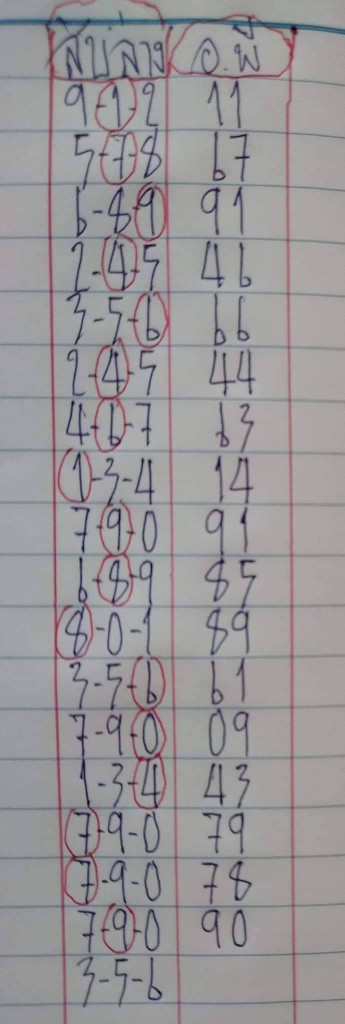 สิบล่าง อ.พี
9-1-2 11
5-7-8 67
6-8-9 91
2-4-5 46
3-5-6 66
2-4-5 44
4-6-7 63
1-3-4 14
7-9-0 91
6-8-9 85
8-0-1 89
3-5-6 61
7-9-0 09
1-3-4 43
7-9-0 79
7-9-0 78
7-9-0 90
3-5-6